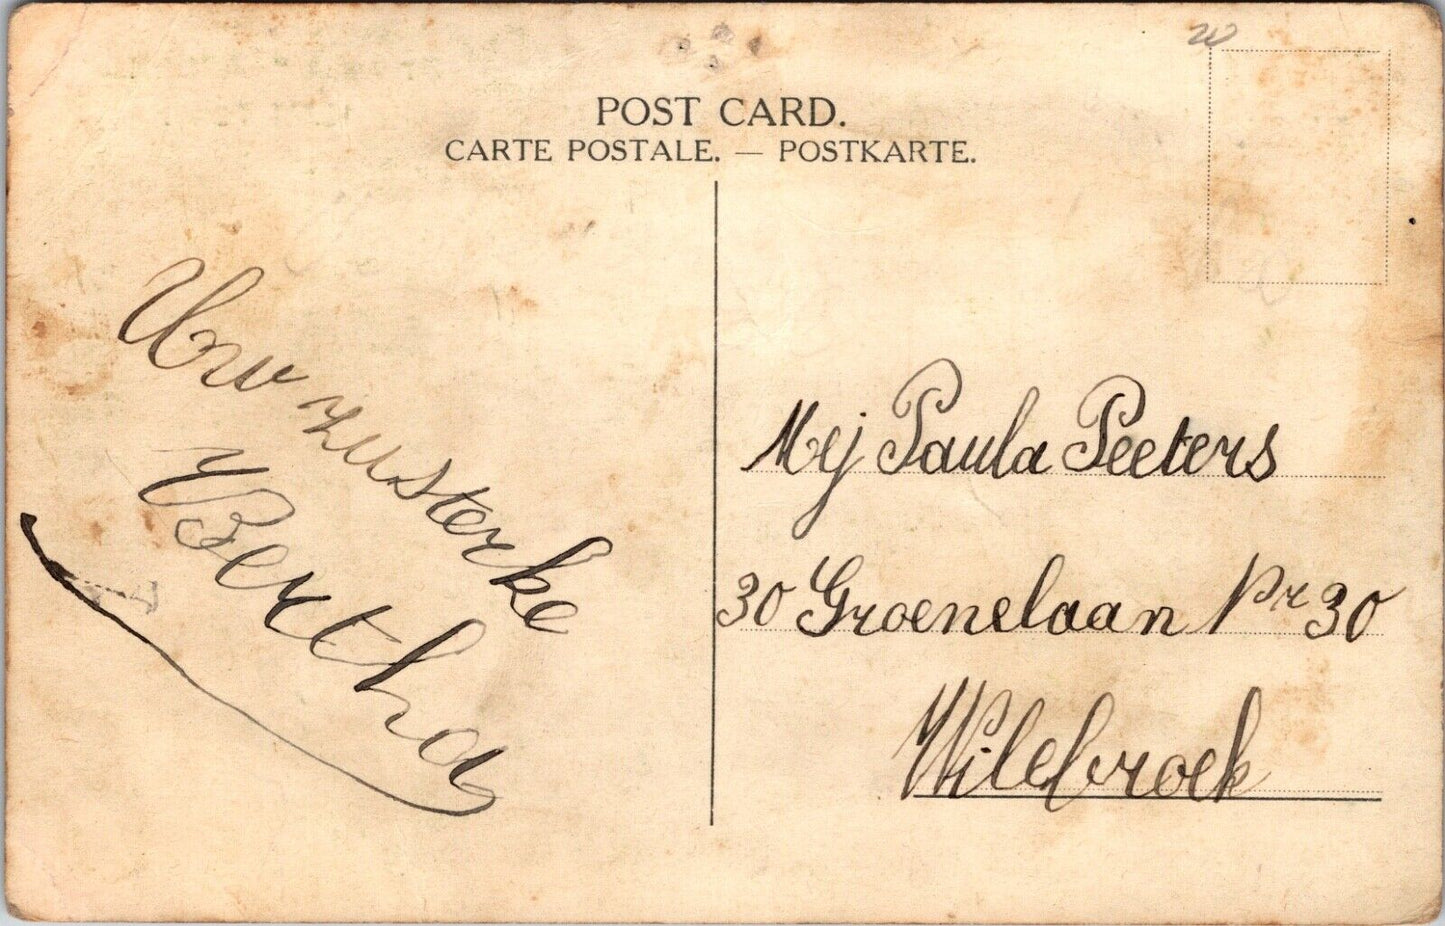 20
POST CARD.
CARTE POSTALE. — POSTKARTE.
Uw zusterke
Bertha
Mej Paula Peeters
30 Groenelaan Nr 30
Wilebroek